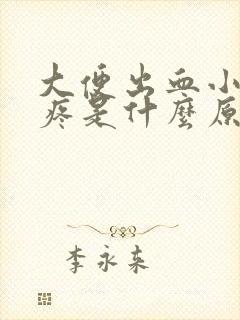 大便出血小
疼是什麼原
李永来